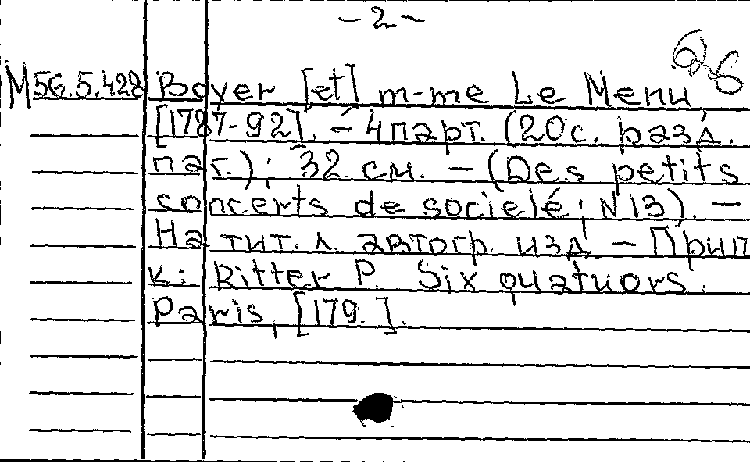 - 2 -
66
М56.5.428 Boyer [et] m-me Le Menu,
[1787-92]. - 4 парт. (20 с. разд.
паг.); 32 см. - (Des petits
concerts de societé; N 13). -
На тит. л. автогр. изд. - Прип.
к: Ritter P. Six quatuors.
Paris, [179.].